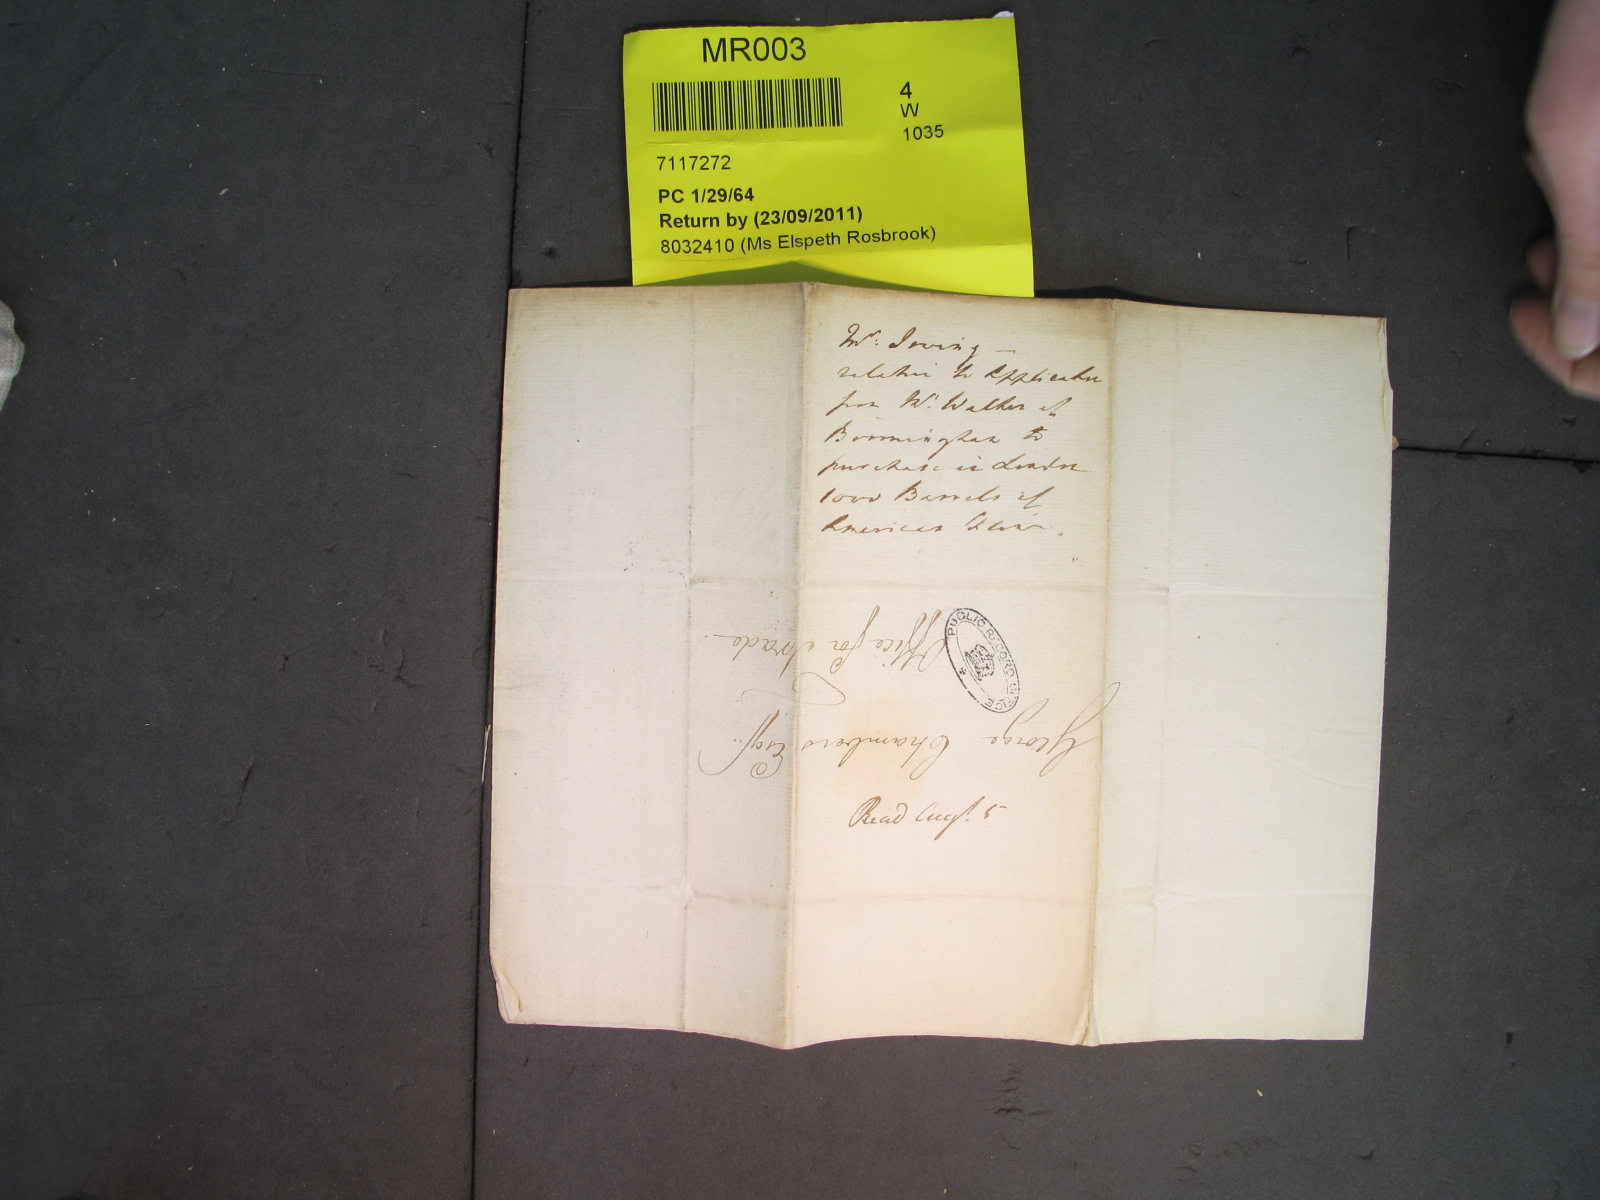 MR003
4
W
1035
7117272
PC 1/29/64
Return by (23/09/2011)
8032410 (Ms Elspeth Rosbrook)
Mr: Irving —
relative to Application
from Mr. Walker of
Birmingham to
purchase in London
1000 Barrels of
American Flour.
PUBLIC RECORD OFFICE
Office for Trade
George Chalmers Esqr.
Read Augt. 5